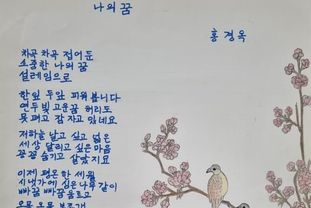 나의 꿈
홍 경 옥
차곡 차곡 접어둔
소중한 나의 꿈
설레임으로
한잎 두잎 피워 봅니다
연두빛 고운꿈 허리도
못 펴고 잠 자고 있네요
저하늘 날고 싶고 넓은
세상 달리고 싶은마음
꽁꽁 숨기고 살았지요
이제 평온한 세월
시냇가에 심은 나무 같이